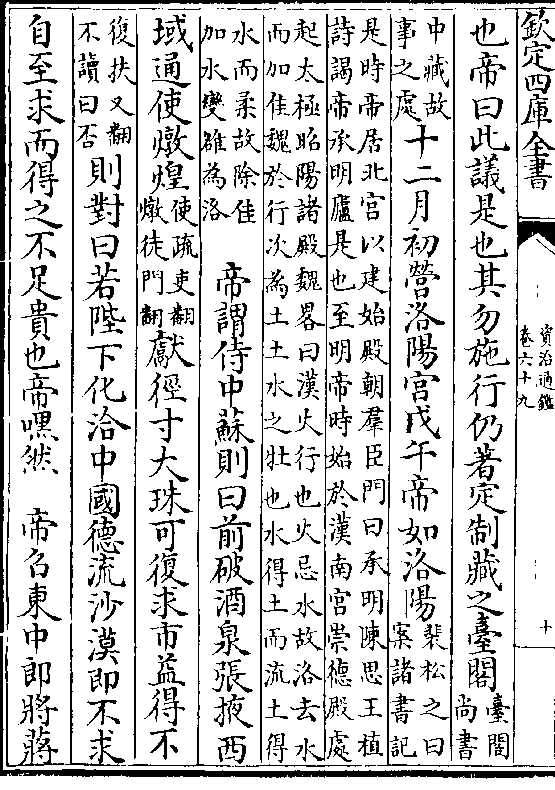 欽定四庫全書
資治通鑑
卷六十九
十
也帝曰此議是也其勿施行仍著定制藏之臺閣臺閣
尚書
中藏故
事之處十二月初營洛陽宮戊午帝如洛陽裴松之曰
案諸書記
是時帝居北宮以建始殿朝羣臣門曰承明陳思王植
詩謁帝承明廬是也至明帝時始於漢南宮崇德殿處
起太極昭陽諸殿魏畧曰漢火行也火忌水故洛去水
而加隹魏於行次為土土水之牡也水得土而流土得
水而柔故除隹
加水變雒為洛
帝謂侍中蘇則曰前破酒泉張掖西
域通使燉煌使疏吏翻
燉徒門翻獻徑寸大珠可復求市益得不
復扶又翻
不讀曰否則對曰若陛下化洽中國德流沙漠即不求
自至求而得之不足貴也帝嘿然
帝召東中郎將蔣